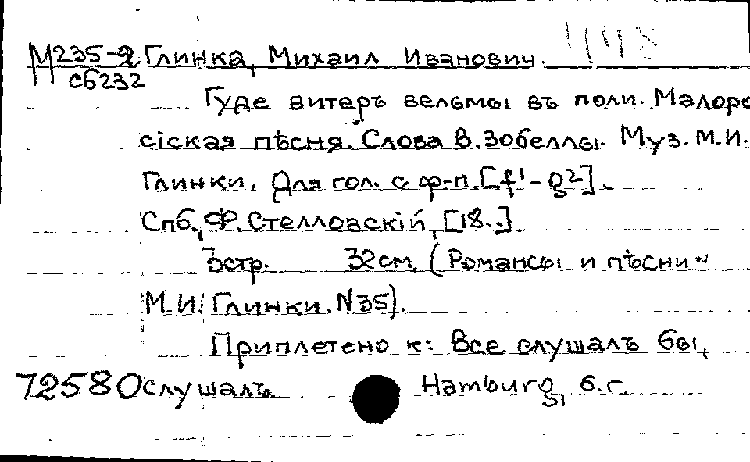 М235-2 Глинка, Михаил Иванович.
сб232
Гуде витеръ вельмы въ поли. Малорос-
сіская пѣсня. Слова В. Зобеллы. Муз. М.И.
Глинки. Для гол. с ф-п. [f¹-g²].
Спб., Ф. Стелловскій, [18..].
3стр. 32см. (Романсы и пѣсни
М.И. Глинки. N35).
Приплетено к: Все слушалъ бы,
72580 слушалъ. Hamburg, б.г.